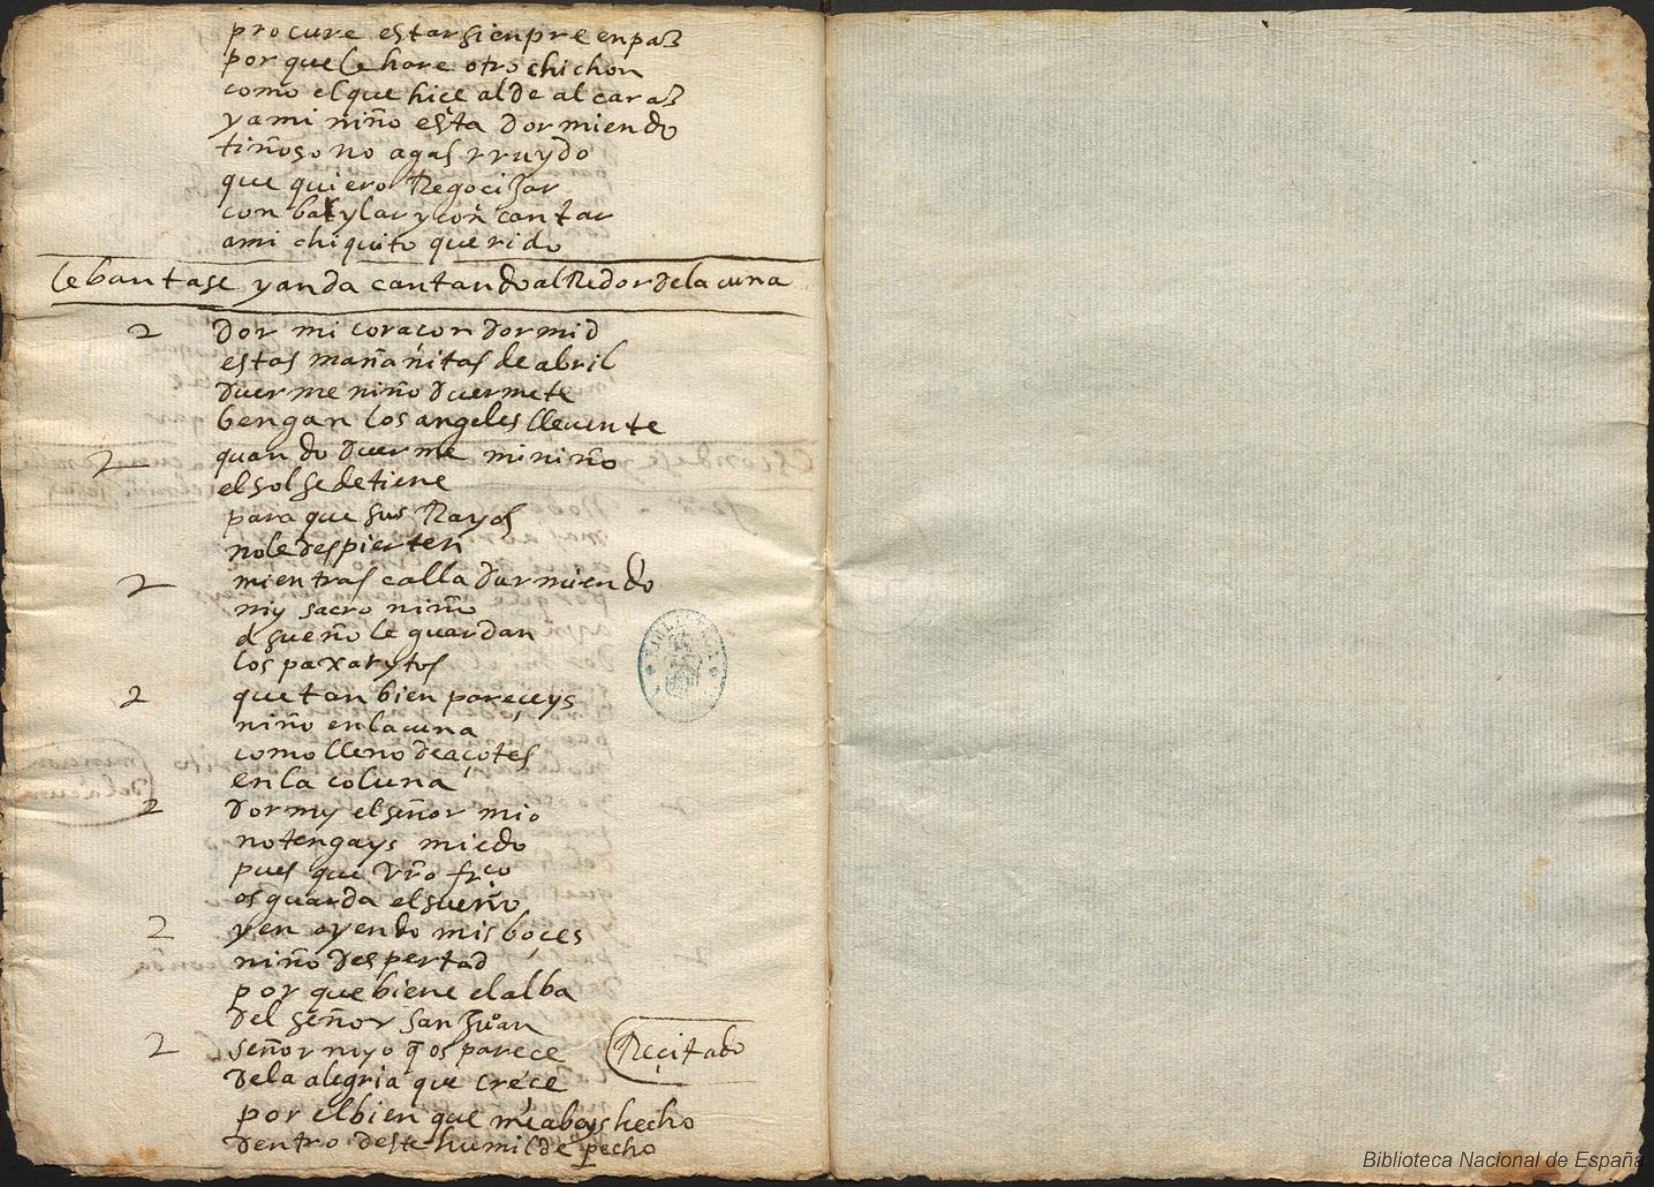 procure estar sienpre en paz
por que le hare otro chichon
como el que hiçe al de alcaraz
ya mi niño esta dormiendo
tiñoso no agas rruydo
que quiero Regocizar
con baylar y con cantar
a mi chiquito querido
lebantase y anda cantando al Redor de la cuna
2 dor mi coraçon dormid
estas mañanitas de abril
duerme niño duermete
bengan los angeles lleuente
2 quando duerme mi niño
el sol se detiene
para que sus Rayos
no le despierten
2 mientras calla durmiendo
my sacro niño
el sueño le guardan
los paxarytos
2 que tan bien pareçeys
niño en la cuna
como lleno de açotes
en la coluna
2 dormy el señor mio
no tengays miedo
pues que vro frco
os guarda el sueño
2 y en oyendo mis boçes
niño despertad
por que biene el alba
del señor san Juan
2 señor myo q os parece (Reçitado
de la alegria que creçe
por el bien que me abeys hecho
dentro deste humilde pecho
Biblioteca Nacional de España